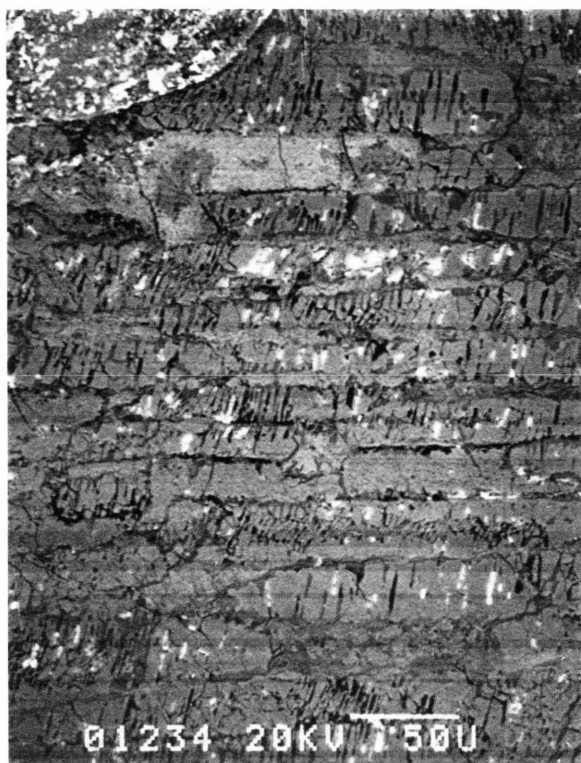 01234 20KV 150U